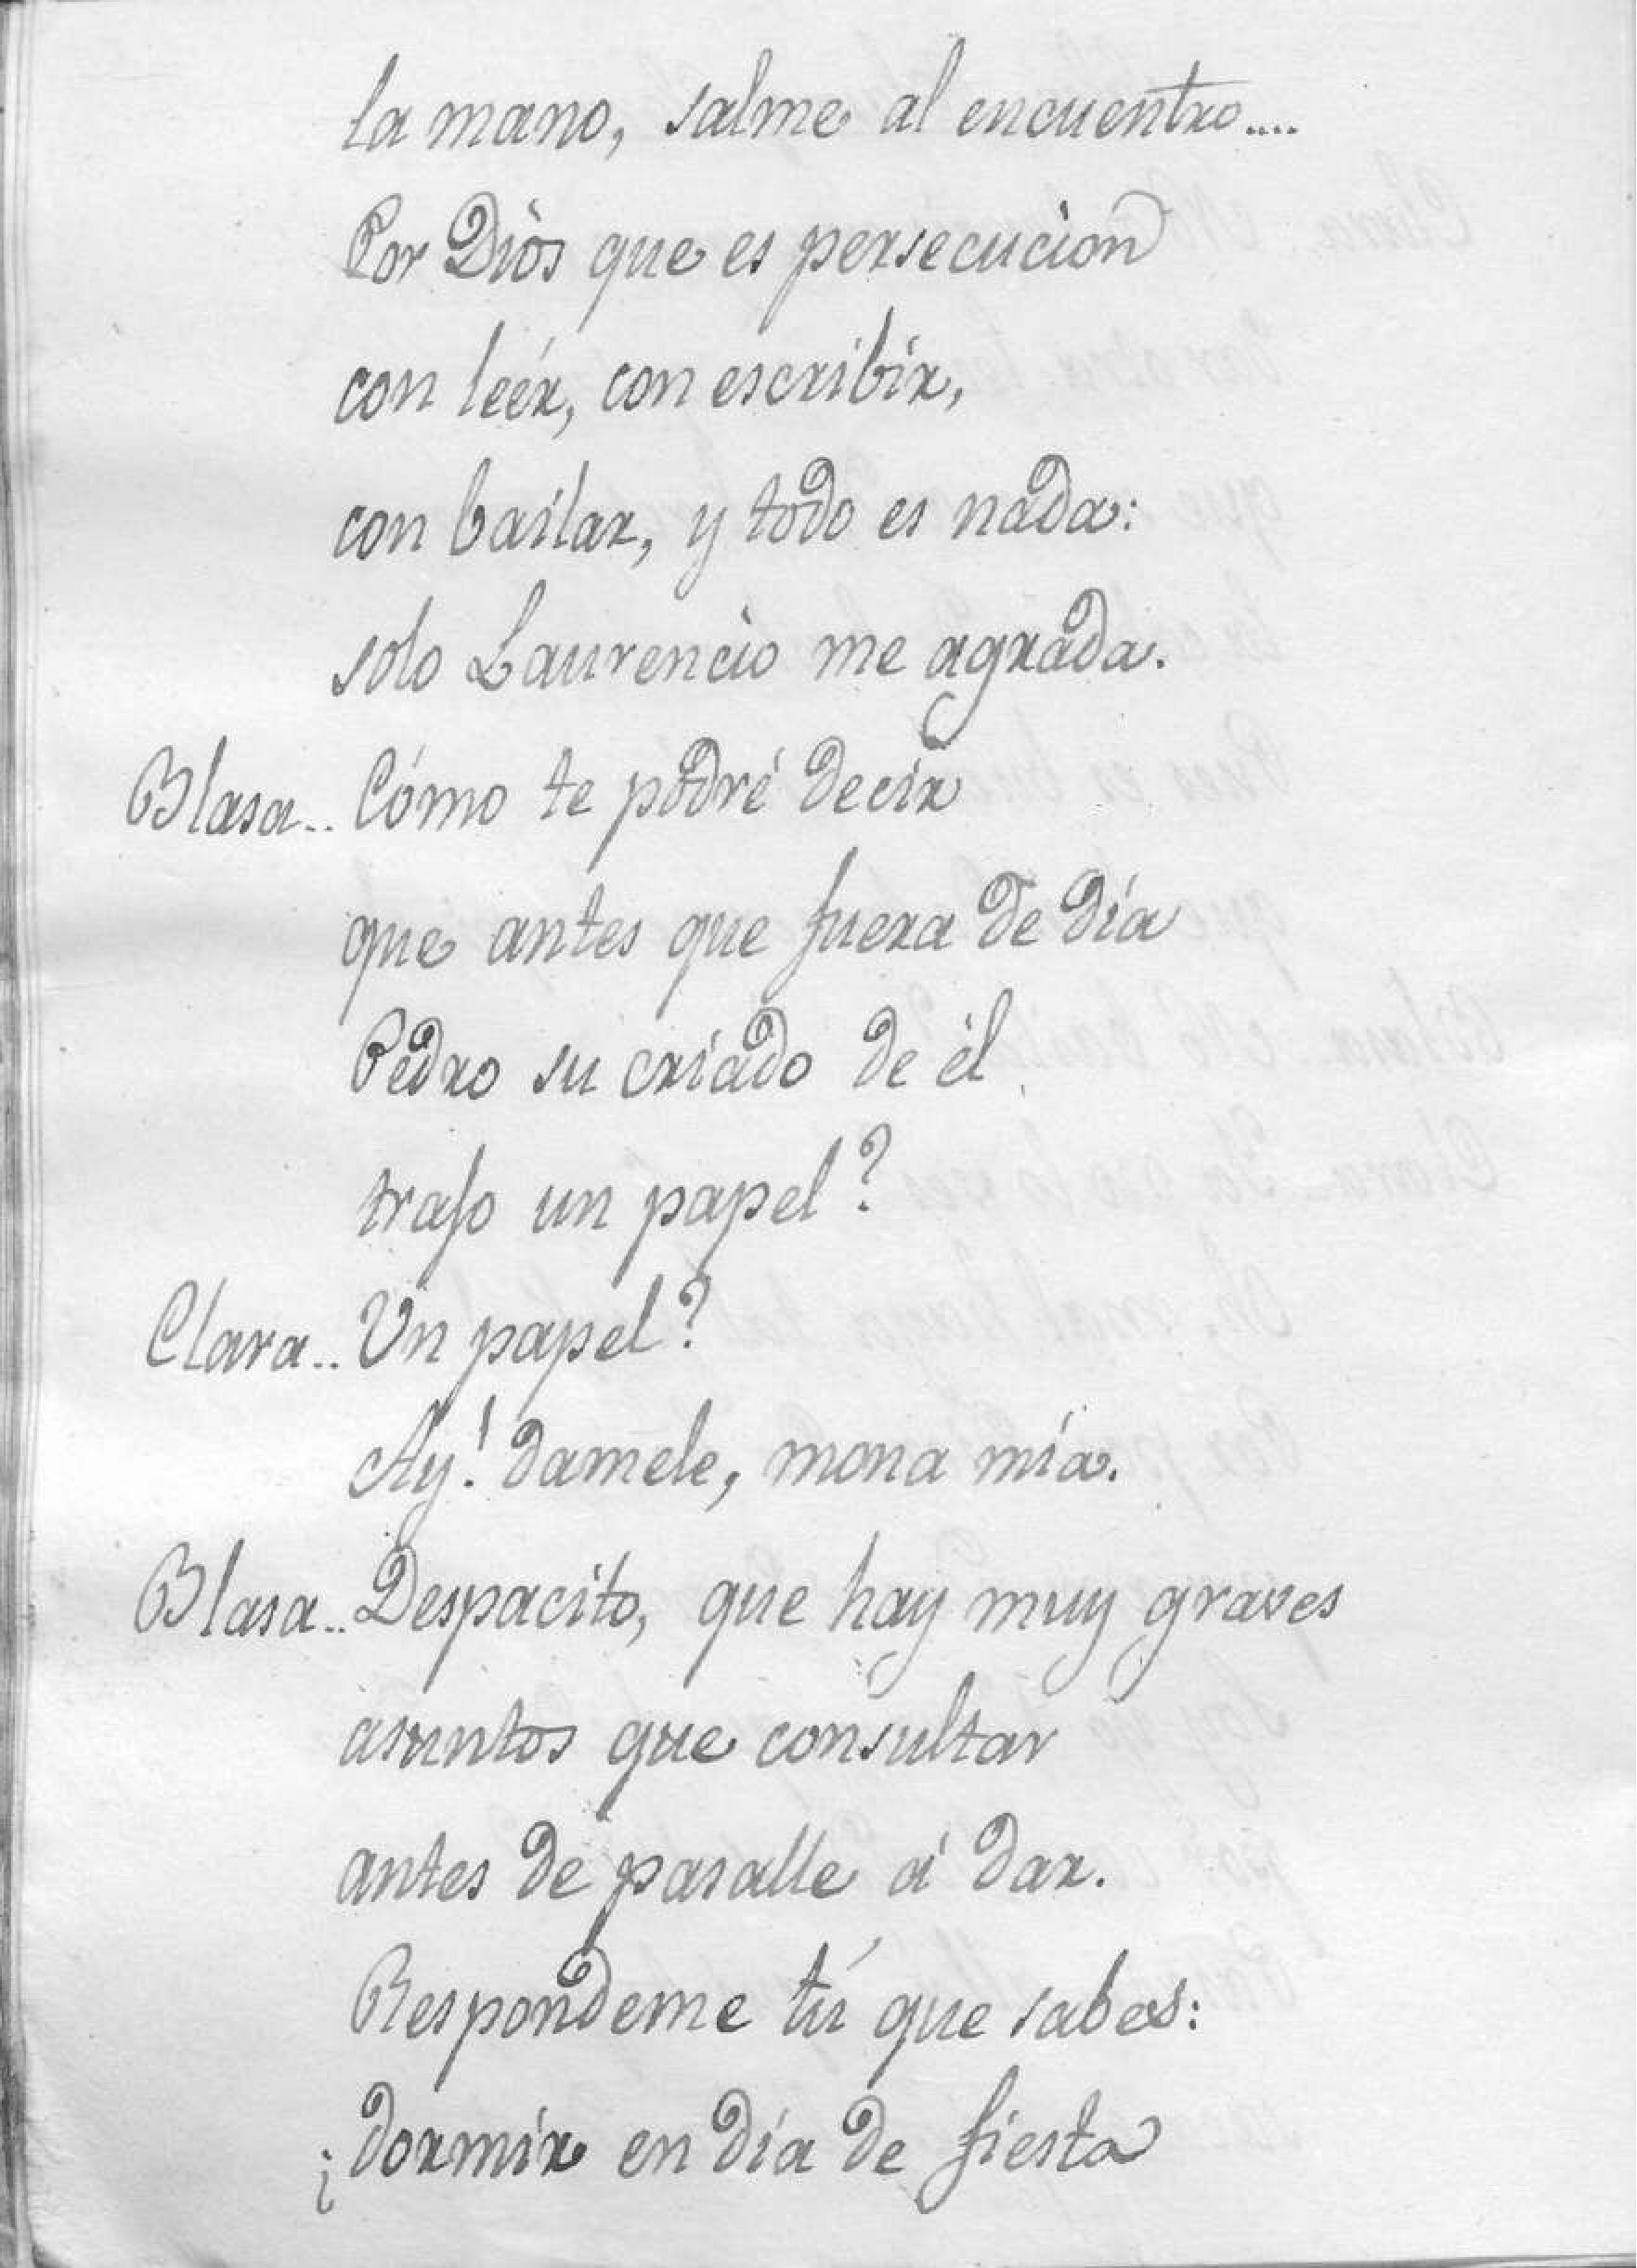 la mano, salme al encuentro....
Por Dios que es persecucion
con leér, con escribir,
con bailar, y todo es nada:
solo Laurencio me agrada.
Blasa.. Cómo te podré decir
que antes que fuera de día
Pedro su criado de él
trajo un papel?
Clara.. Un papel?
Ay! damele, mona mía.
Blasa.. Despacito, que hay muy graves
asuntos que consultar
antes de pasalle á dar.
Respondeme tú que sabes:
¿dormir en día de fiesta